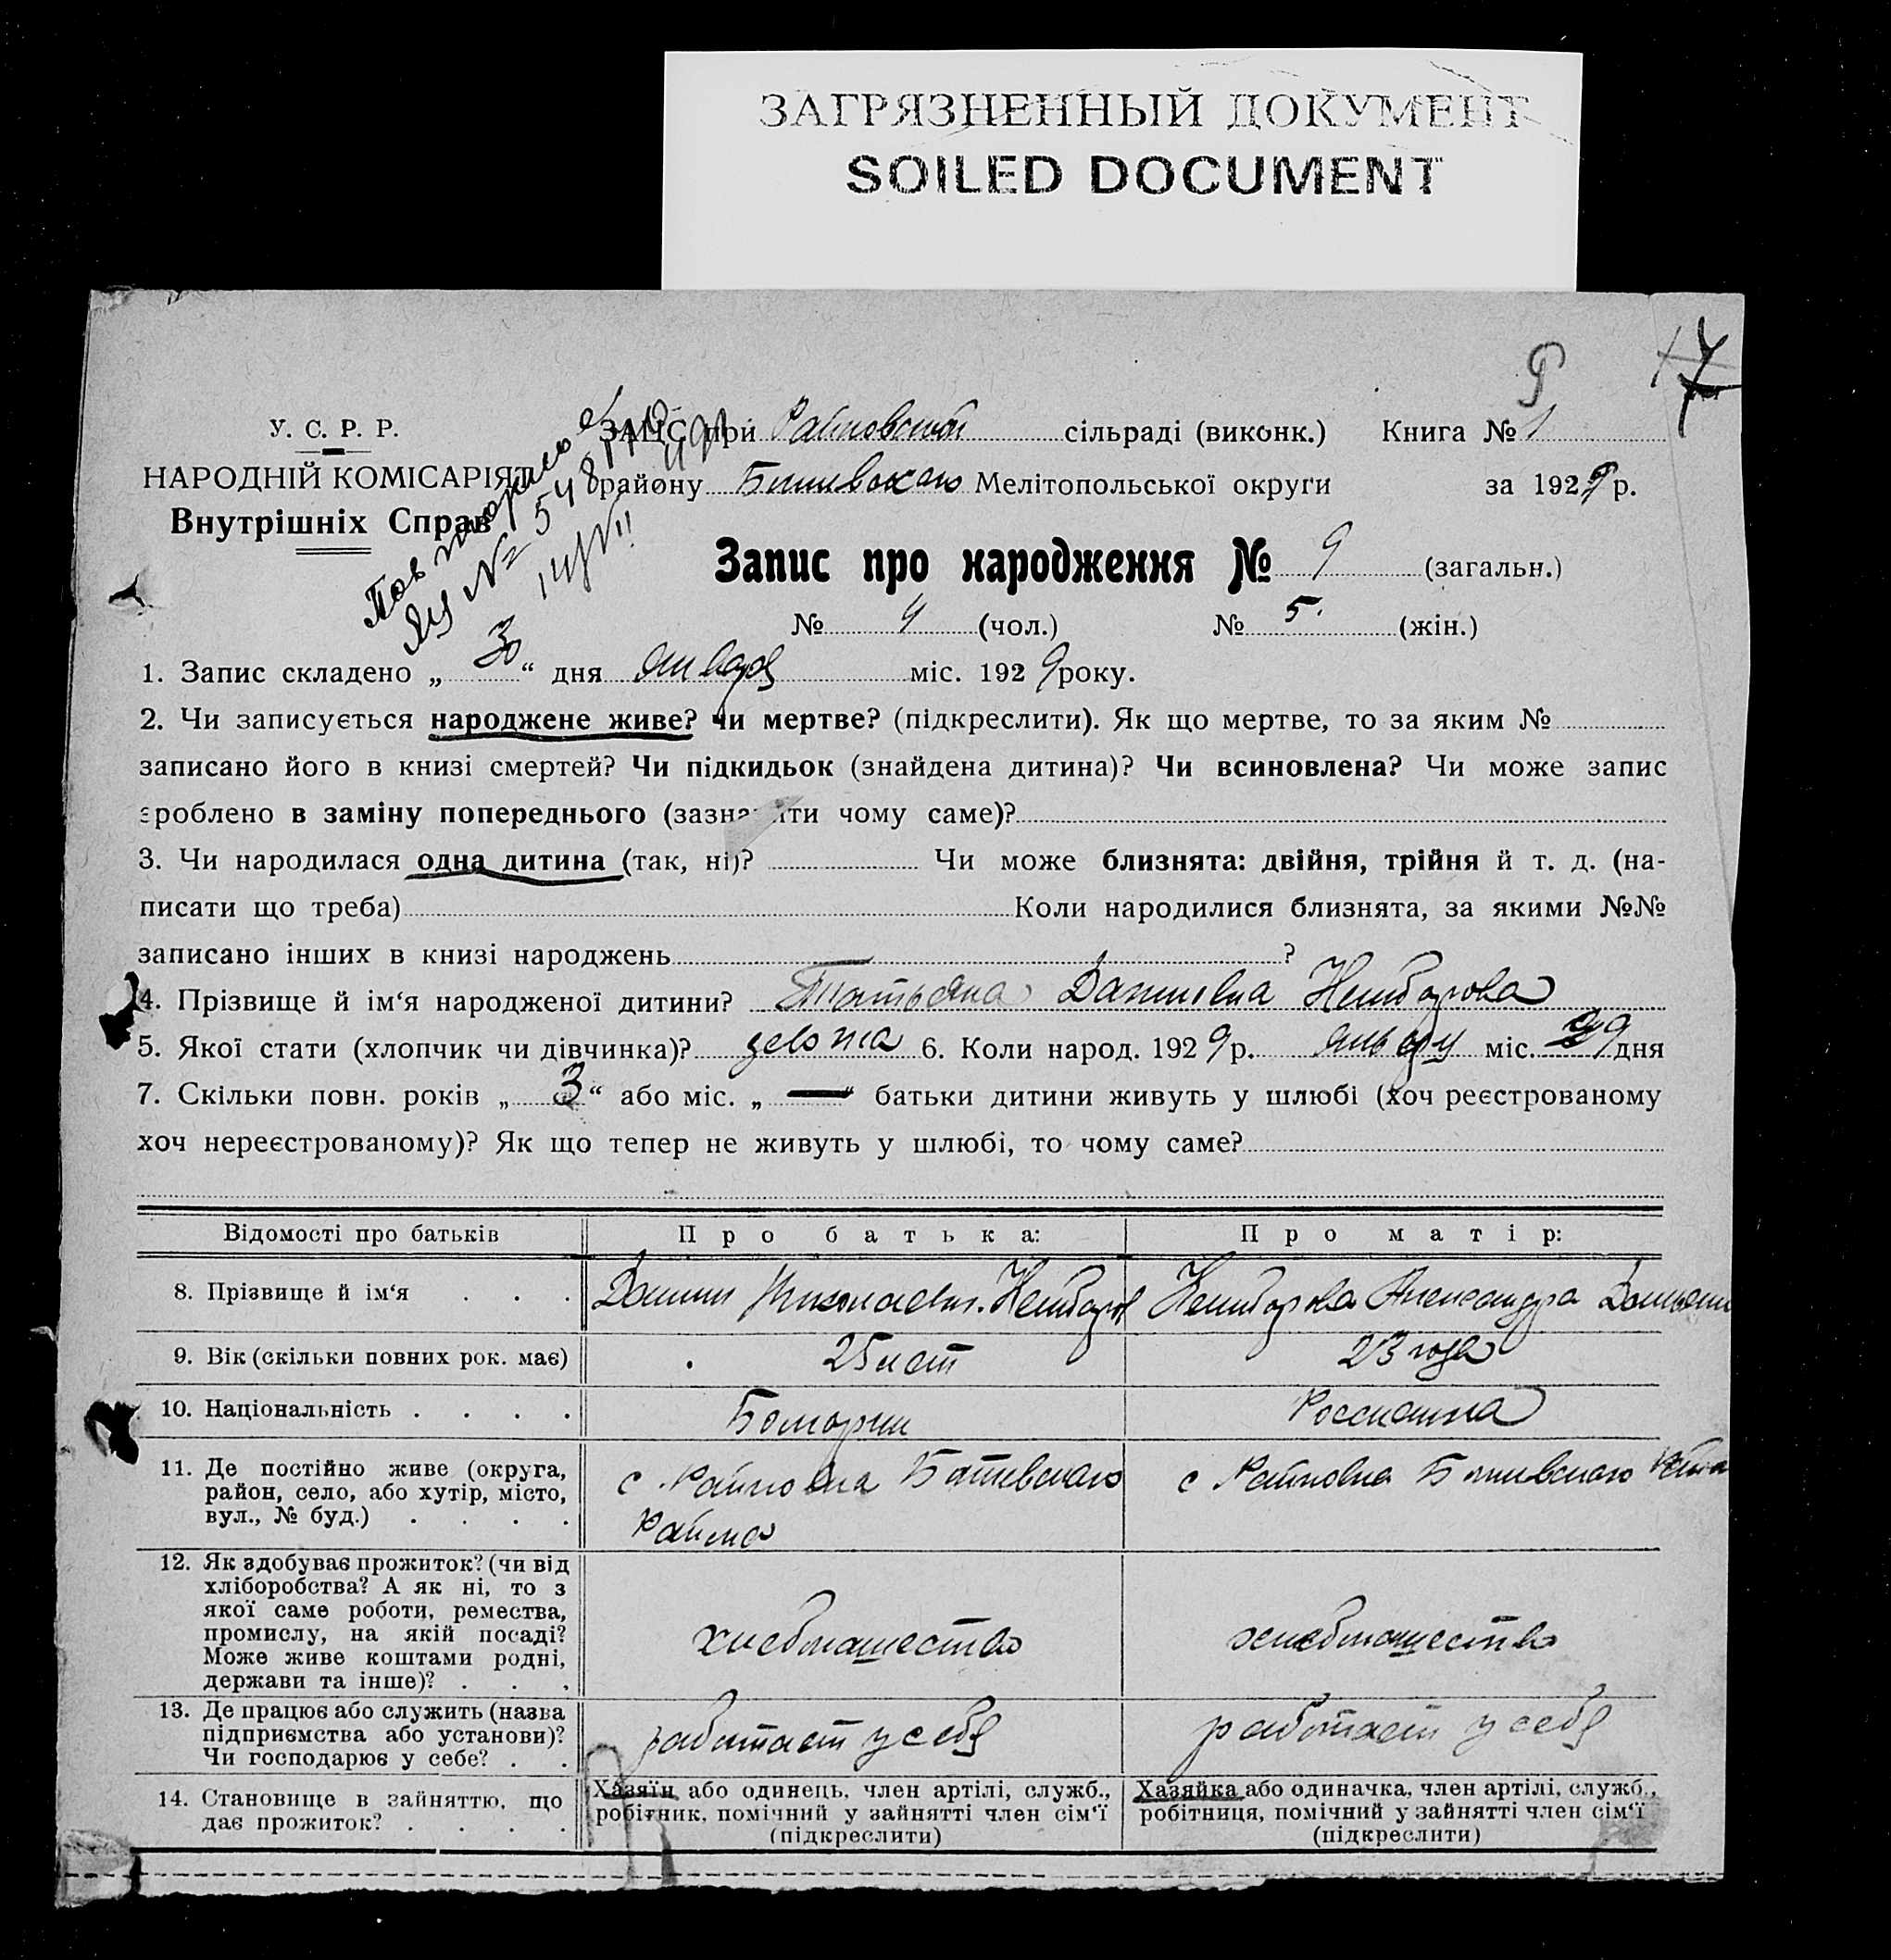 ЗАГРЯЗНЕННЫЙ ДОКУМЕНТ
SOILED DOCUMENT
17
У. С. Р. Р.
НАРОДНІЙ КОМІСАРІЯТ
Внутрішніх Справ
ЗАЦС при сільраді (виконк.) Книга № 1
району Мелітопольської округи за 1929 р.
Запис про народження № 9 (загальн.)
№ 4 (чол.) № 5 (жін.)
1. Запис складено „30“ дня января міс. 1929 року.
2. Чи записується народжене живе? чи мертве? (підкреслити). Як що мертве, то за яким №
записано його в книзі смертей? Чи підкидьок (знайдена дитина)? Чи всиновлена? Чи може запис
зроблено в заміну попереднього (зазначити чому саме)?
3. Чи народилася одна дитина (так, ні)? Чи може близнята: двійня, трійня й т. д. (на-
писати що треба) Коли народилися близнята, за якими №№
записано інших в книзі народжень ?
4. Прізвище й ім‘я народженої дитини? Татьяна Даниловна
5. Якої стати (хлопчик чи дівчинка)? 6. Коли народ. 1929 р. январу міс. 29 дня
7. Скільки повн. років „3“ або міс. „—“ батьки дитини живуть у шлюбі (хоч реєстрованому
хоч нереєстрованому)? Як що тепер не живуть у шлюбі, то чому саме?
Відомості про батьків Про батька: Про матір:
8. Прізвище й ім‘я . . . Данил Николаевич Александра
9. Вік (скільки повних рок. має) 25 лет 23 года
10. Національність . . . . Россианка
11. Де постійно живе (округа,
район, село, або хутір, місто,
вул., № буд.) . . . .
с Райновка Ботиевского с Райновка Ботиевского
Района
12. Як здобуває прожиток? (чи від
хліборобства? А як ні, то з
якої саме роботи, ремества,
промислу, на якій посаді?
Може живе коштами родні,
держави та інше)? . . .
хлебопашество хлебопашество
13. Де працює або служить (назва
підприємства або установи)?
Чи господарює у себе? . .
работает у себя работает у себя
14. Становище в зайняттю, що
дає прожиток? . . . .
Хазяїн або одинець, член артілі, служб.,
робітник, помічний у зайнятті член сім‘ї
(підкреслити)
Хазяйка або одиначка, член артілі, служб.,
робітниця, помічний у зайнятті член сім‘ї
(підкреслити)